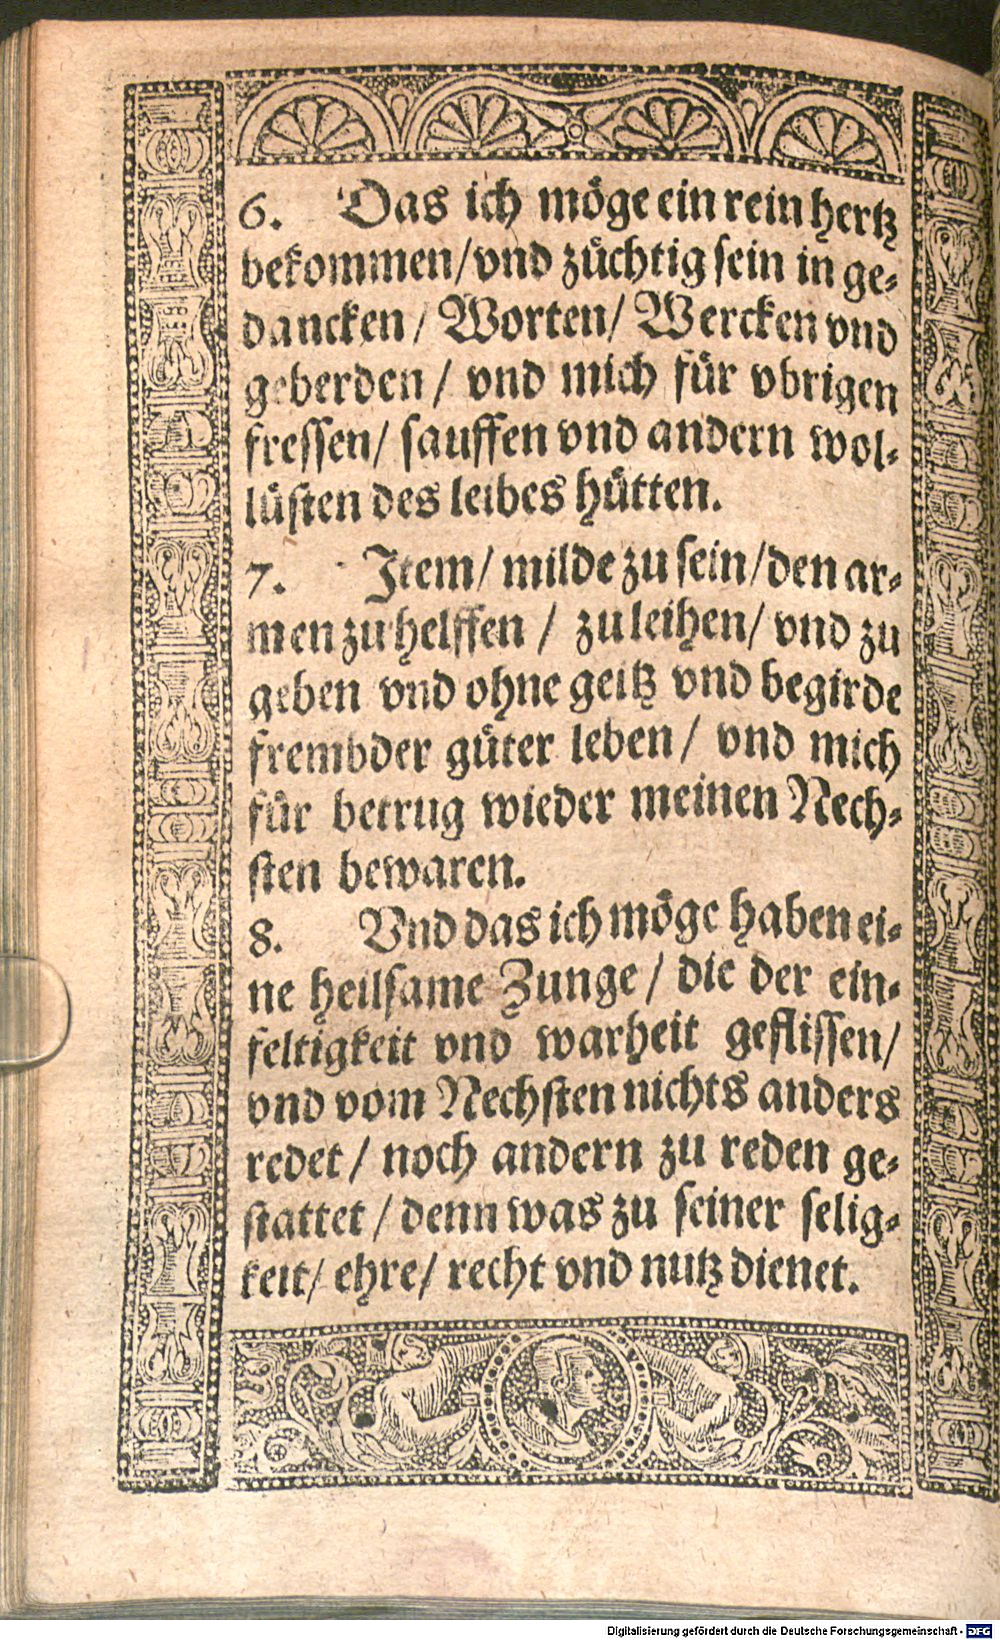 6. Das ich möge ein rein hertz
bekommen/ vnd züchtig sein in ge-
dancken/ Worten/ Wercken vnd
geberden/ vnd mich für vbrigen
fressen/ sauffen vnd andern wol-
lüsten des leibes hütten.
7. Item/ milde zu sein/ den ar-
men zu helffen/ zu leihen/ vnd zu
geben vnd ohne geitz vnd begirde
frembder güter leben/ vnd mich
für betrug wieder meinen Nech-
sten bewaren.
8. Vnd das ich möge haben ei-
ne heilsame Zunge/ die der ein-
feltigkeit vnd warheit geflissen/
vnd vom Nechsten nichts anders
redet/ noch andern zu reden ge-
stattet/ denn was zu seiner selig-
keit/ ehre/ recht vnd nutz dienet.
Digitalisierung gefördert durch die Deutsche Forschungsgemeinschaft - DFG